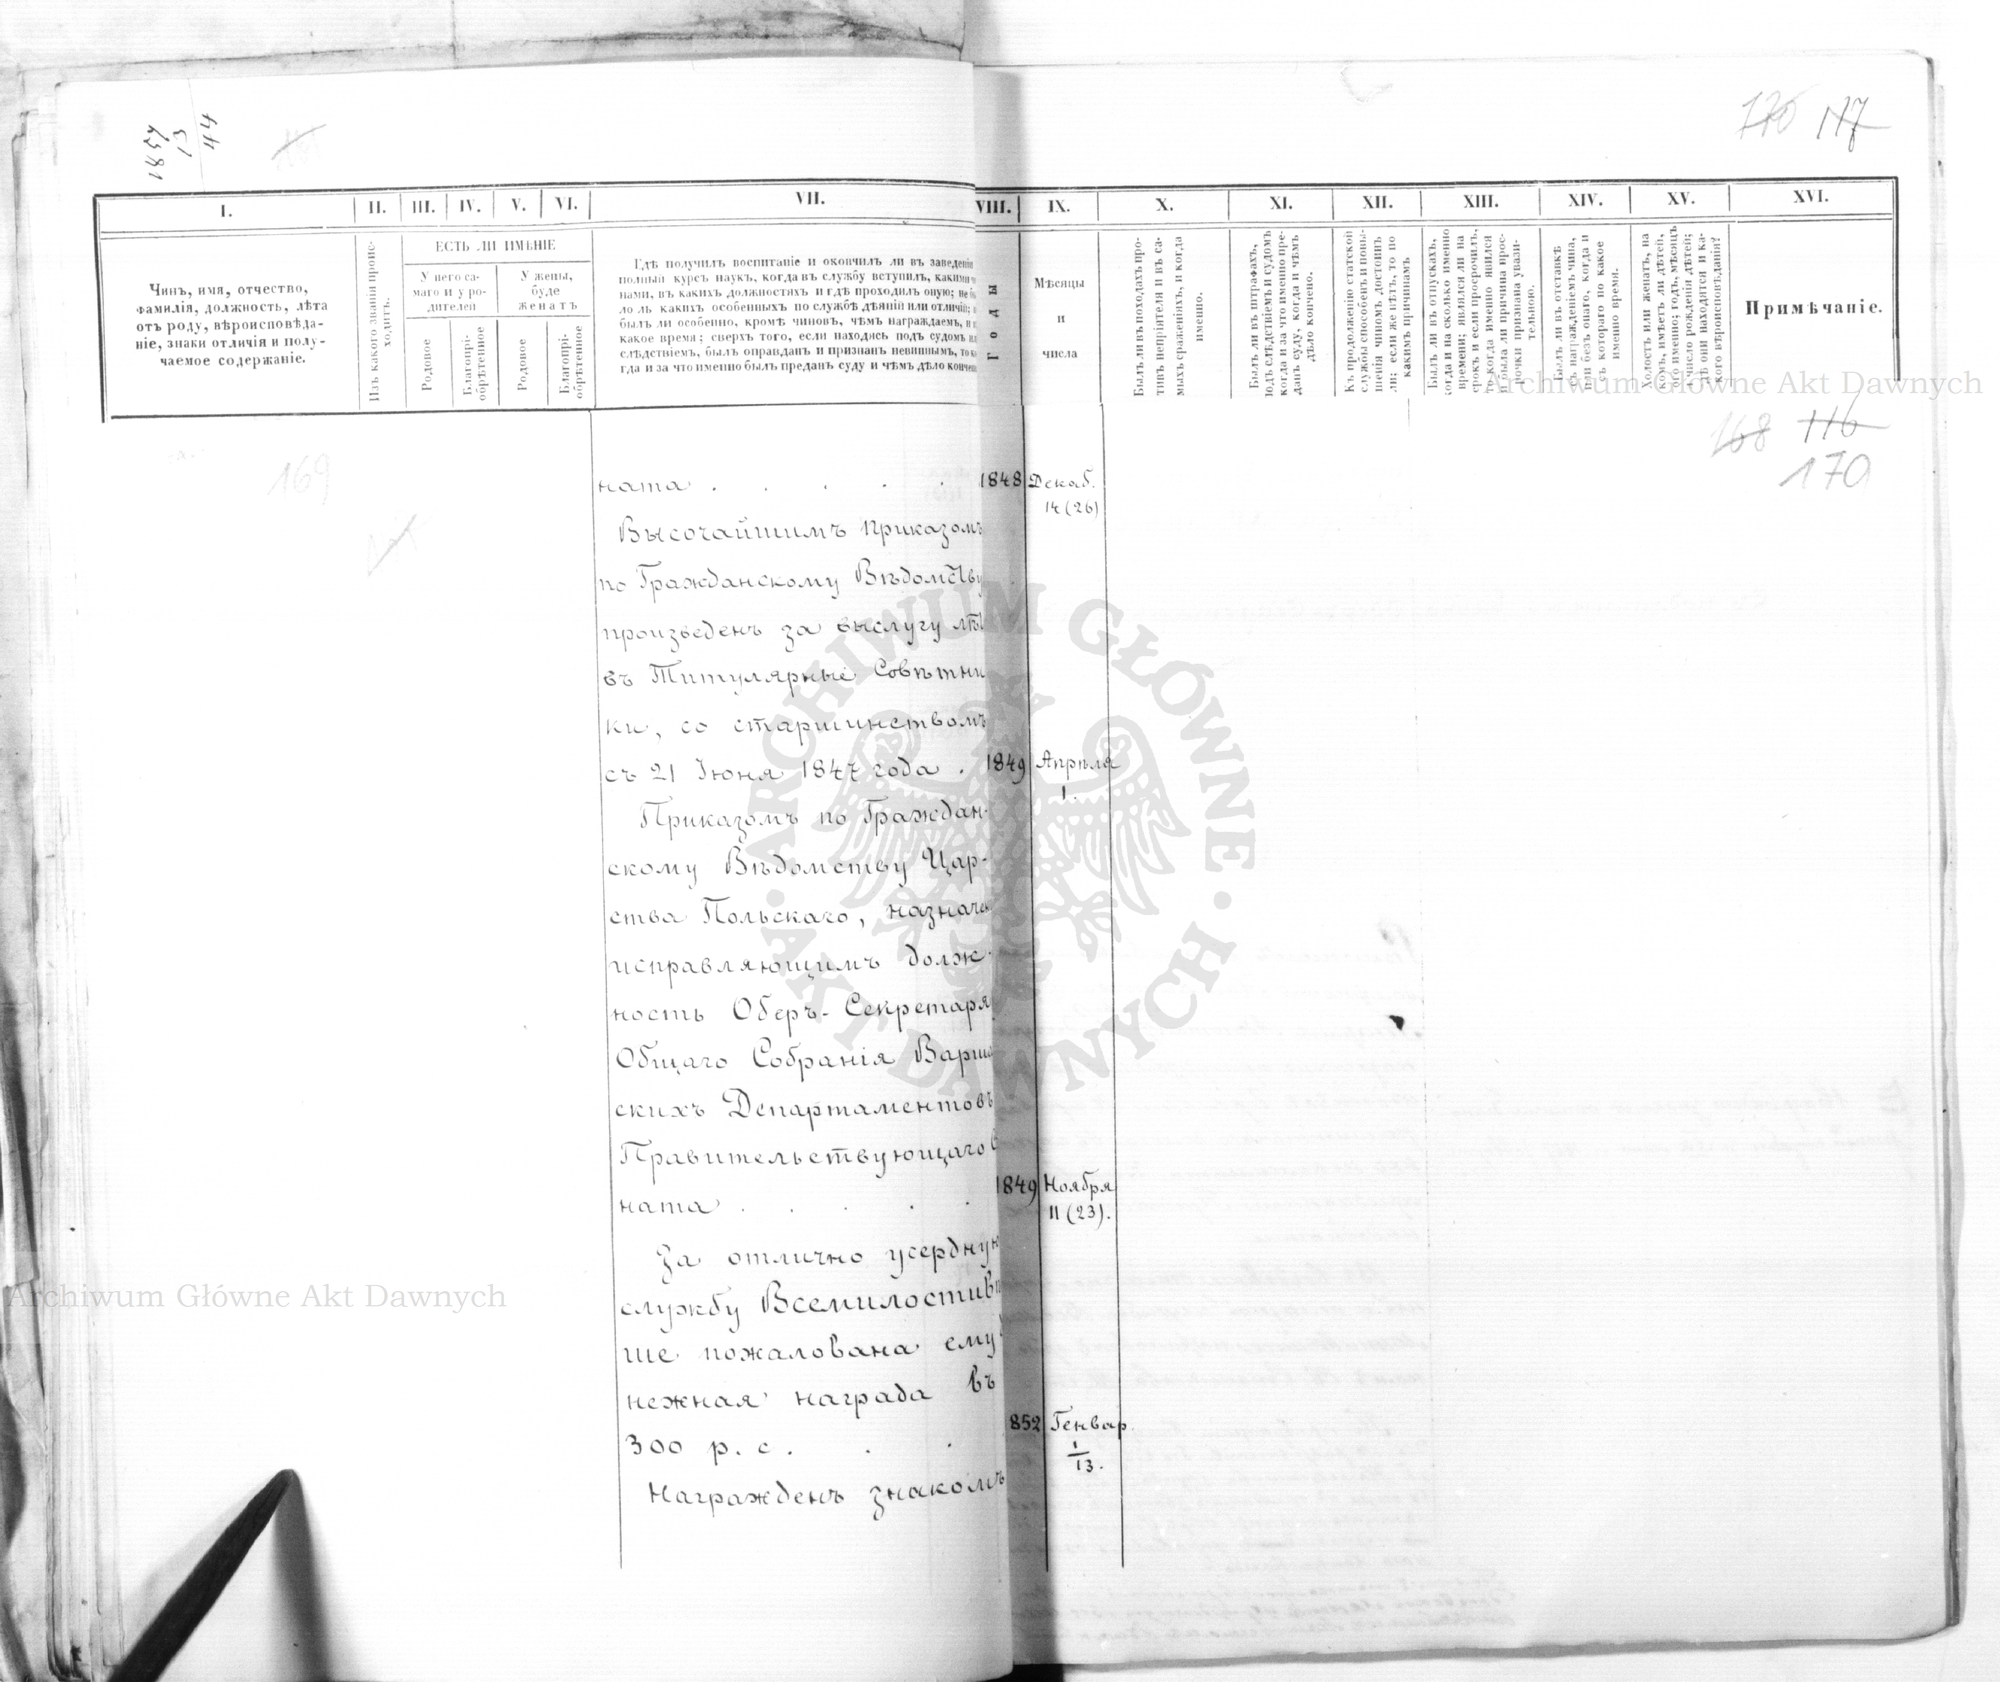 1857
13
44
170 117
I.
II.
III.
IV.
V.
VI.
VII.
VIII.
IX.
X.
XI.
XII.
XIII.
XIV.
XV.
XVI.
Чинъ, имя, отчество,
фамилія, должность, лѣта
отъ роду, вѣроисповѣда-
ніе, знаки отличія и полу-
чаемое содержаніе.
Изъ какого званія проис-
ходитъ.
ЕСТЬ ЛИ ИМѢНІЕ
У него са-
маго и у ро-
дителей
У жены,
буде
женатъ
Родовое
Благопрі-
обрѣтенное
Родовое
Благопрі-
обрѣтенное
Гдѣ получилъ воспитаніе и окончилъ ли въ заведеніи
полный курсъ наукъ, когда въ службу вступилъ, какими чи
нами, въ какихъ должностяхъ и гдѣ проходилъ оную; не бы
ло ль какихъ особенныхъ по службѣ дѣяній или отличій;
былъ ли особенно, кромѣ чиновъ, чѣмъ награждаемъ, и въ
какое время; сверхъ того, если находясь подъ судомъ или
слѣдствіемъ, былъ оправданъ и признанъ невиннымъ, то ко
гда и за что именно былъ преданъ суду и чѣмъ дѣло кончено
Годы
Мѣсяцы
и
числа
Былъ ли въ походахъ про-
тивъ непріятеля и въ са-
мыхъ сраженіяхъ, и когда
именно.
Былъ ли въ штрафахъ,
подъ слѣдствіемъ и судомъ
когда и за что именно пре-
данъ суду, когда и чѣмъ
дѣло кончено.
Къ продолженію статской
службы способенъ и повы-
шенія чиномъ достоинъ
ли; если же нѣтъ, то по
какимъ причинамъ
Былъ ли въ отпускахъ,
когда и на сколько именно
времени; являлся ли на
срокъ и если просрочилъ,
то когда именно явился
и была ли причина прос-
рочки признана уважи-
тельною.
Былъ ли въ отставкѣ
съ награжденіемъ чина,
или безъ онаго, когда и
съ котораго по какое
именно время.
Холостъ или женатъ, на
комъ, имѣетъ ли дѣтей,
кого именно; годъ, мѣсяцъ
и число рожденія дѣтей;
гдѣ они находятся и ка-
кого вѣроисповѣданія?
Примѣчаніе.
Archiwum Główne Akt Dawnych
168 116
170
169
ната . . . . . 1848 Декаб.
14 (26)
Высочайшимъ приказомъ
по Гражданскому Вѣдомству
произведенъ за выслугу лѣтъ
въ Титулярные Совѣтни
ки, со старшинствомъ
съ 21 Іюня 1847 года . 1849 Апрѣля
1.
Приказомъ по Граждан-
скому Вѣдомству Цар-
ства Польскаго, назначен
исправляющимъ долж-
ность Оберъ-Секретаря
Общаго Собранія Варша
скихъ Департаментовъ
Правительствующаго С
ната . . . . . 1849 Ноября
11 (23).
За отлично усердную
службу Всемилостивѣй
ше пожалована ему
нежная награда въ
300 р. с. . . 852 Генвар.
1/13.
Награжденъ знакомъ
ARCHIWUM GŁÓWNE
AKT DAWNYCH
Archiwum Główne Akt Dawnych